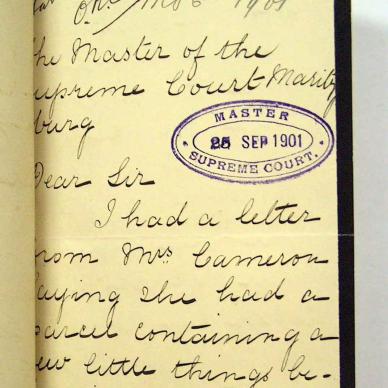 1901
The Master of the
Supreme Court Maritz
burg
MASTER
25 SEP 1901
SUPREME COURT.
Dear Sir
I had a letter
from Mrs Cameron
saying she had a
parcel containing a
few little things be-